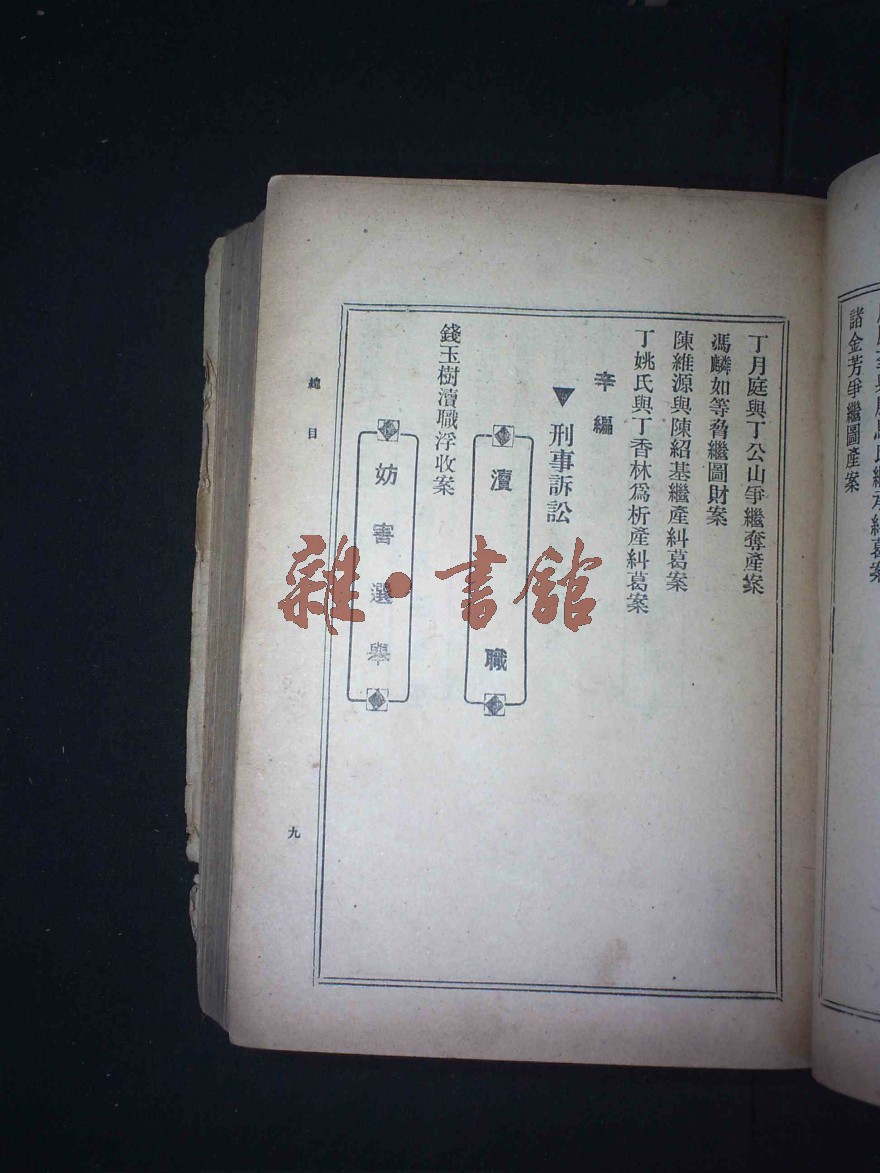 諸金芳爭繼圖產案
丁月庭與丁公山爭繼奪產案
馮麟如等脅繼圖財案
陳維源與陳紹基繼產糾葛案
丁姚氏與丁香林爲析產糾葛案
辛編
▼刑事訴訟
瀆職
錢玉樹瀆職浮收案
妨害選舉
總目
九
雜·書館